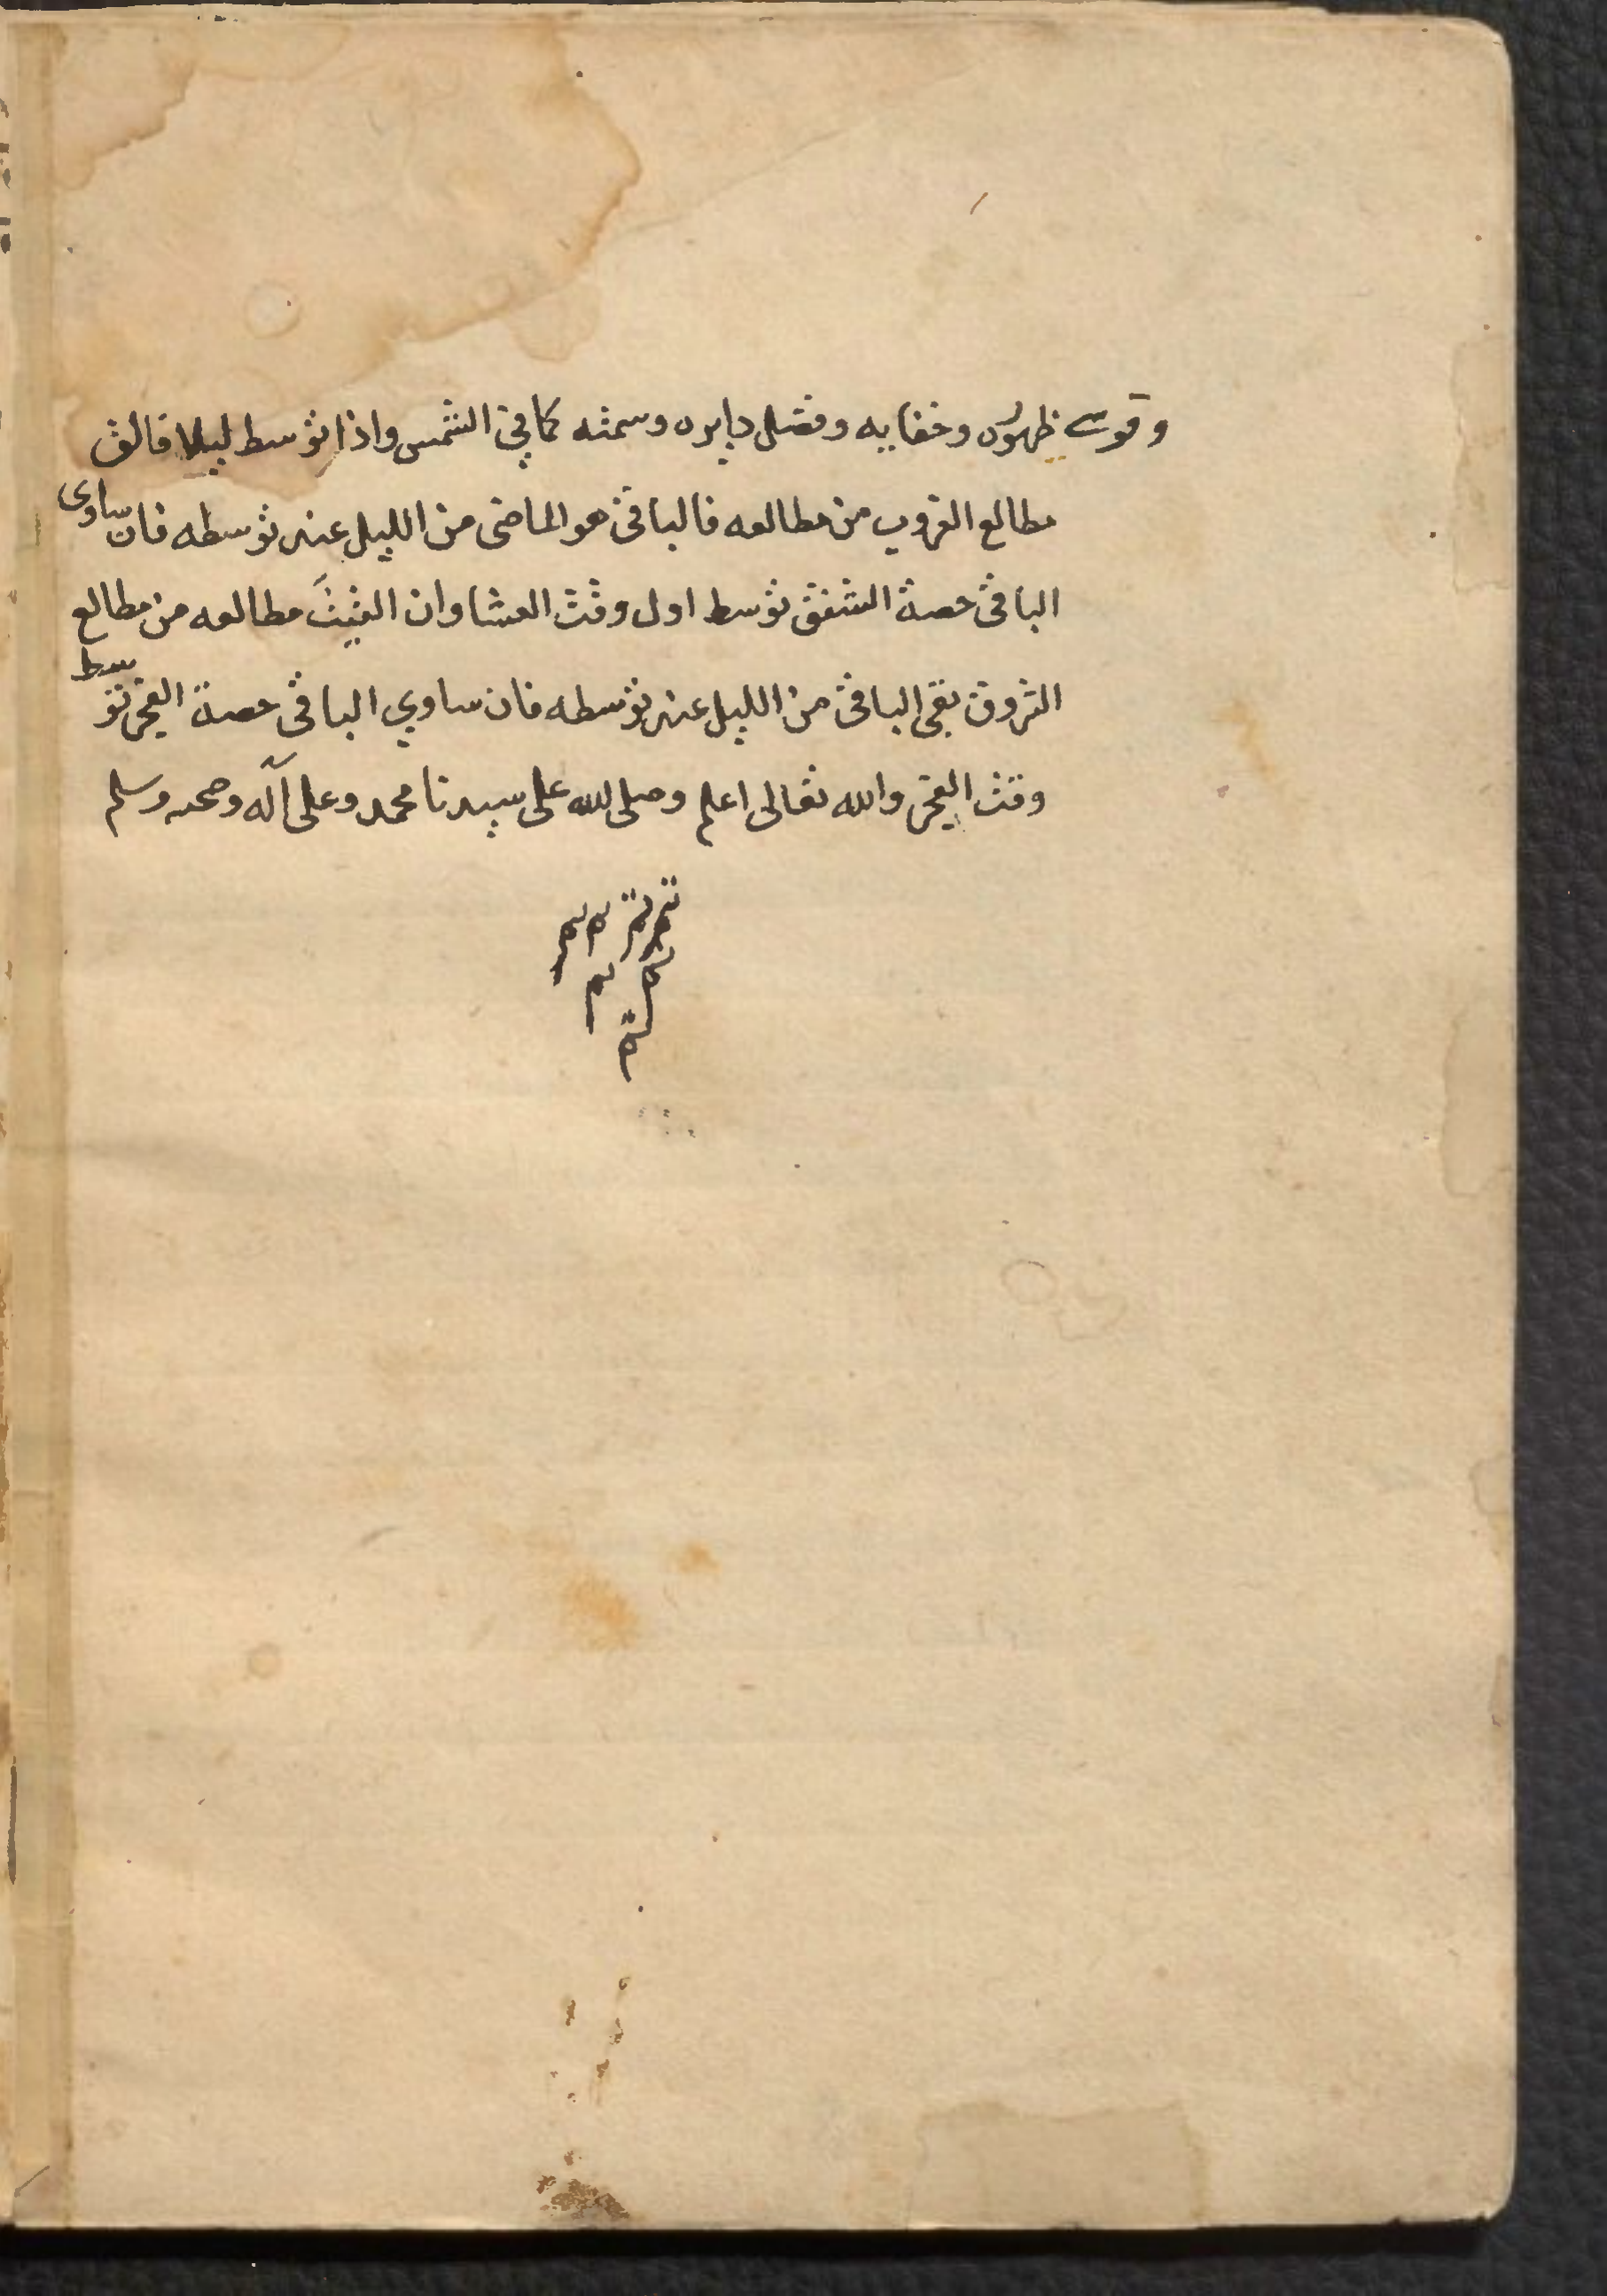 وقوسے ظهوره وخفايه وفضل دايره وسمته كما في الشمس واذا توسط ليلا فالق
مطالع الغروب من مطالعه فالباقي هو الماضي من الليل عند توسطه فان ساوى
الباقي حصة الشفق توسط اول وقت العشا وان القيت مطالعه من مطالع
الشروق بقي الباقي من الليل عند توسطه فان ساوي الباقي حصة الفجر توسط
وقت الفجر والله تعالى اعلم وصلى الله على سيدنا محمد وعلى آله وصحبه وسلم
تم تم تم تم
تم تم
تم